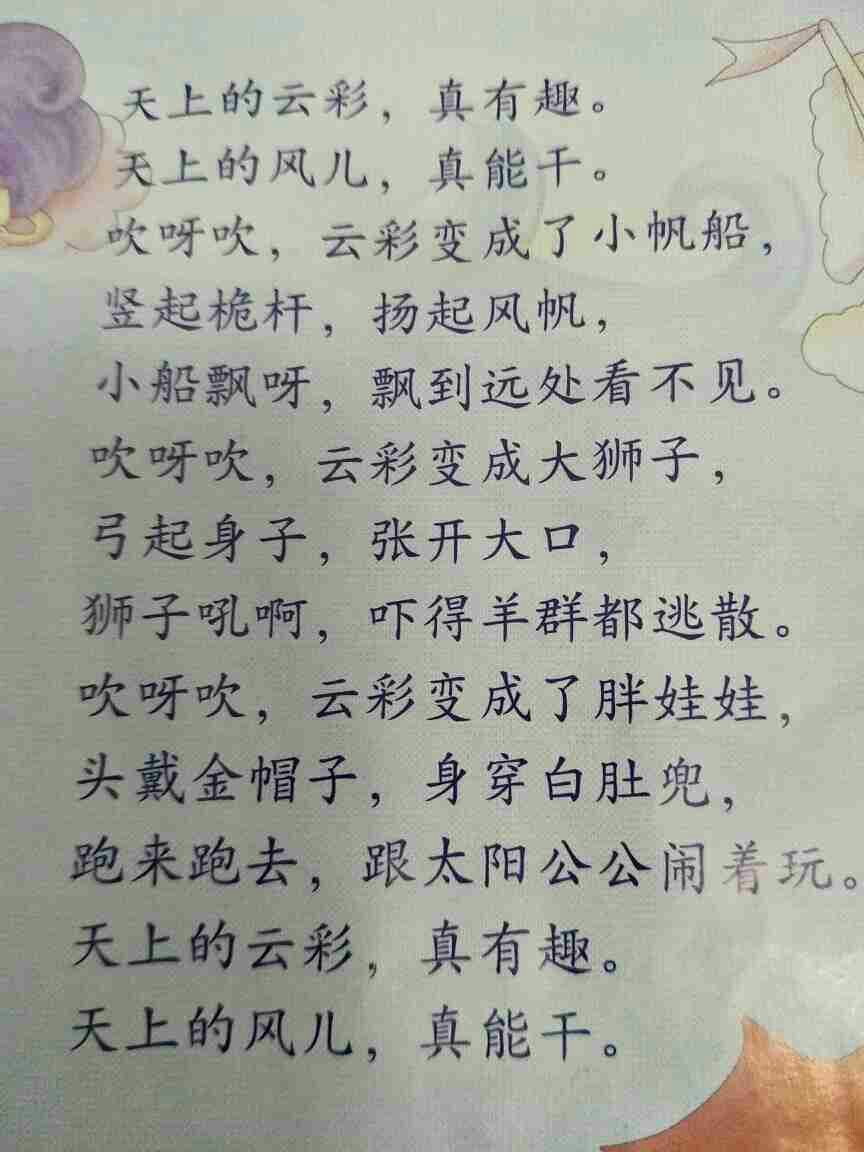 天上的云彩，真有趣。
天上的风儿，真能干。
吹呀吹，云彩变成了小帆船，
竖起桅杆，扬起风帆，
小船飘呀，飘到远处看不见。
吹呀吹，云彩变成大狮子，
弓起身子，张开大口，
狮子吼啊，吓得羊群都逃散。
吹呀吹，云彩变成了胖娃娃，
头戴金帽子，身穿白肚兜，
跑来跑去，跟太阳公公闹着玩。
天上的云彩，真有趣。
天上的风儿，真能干。